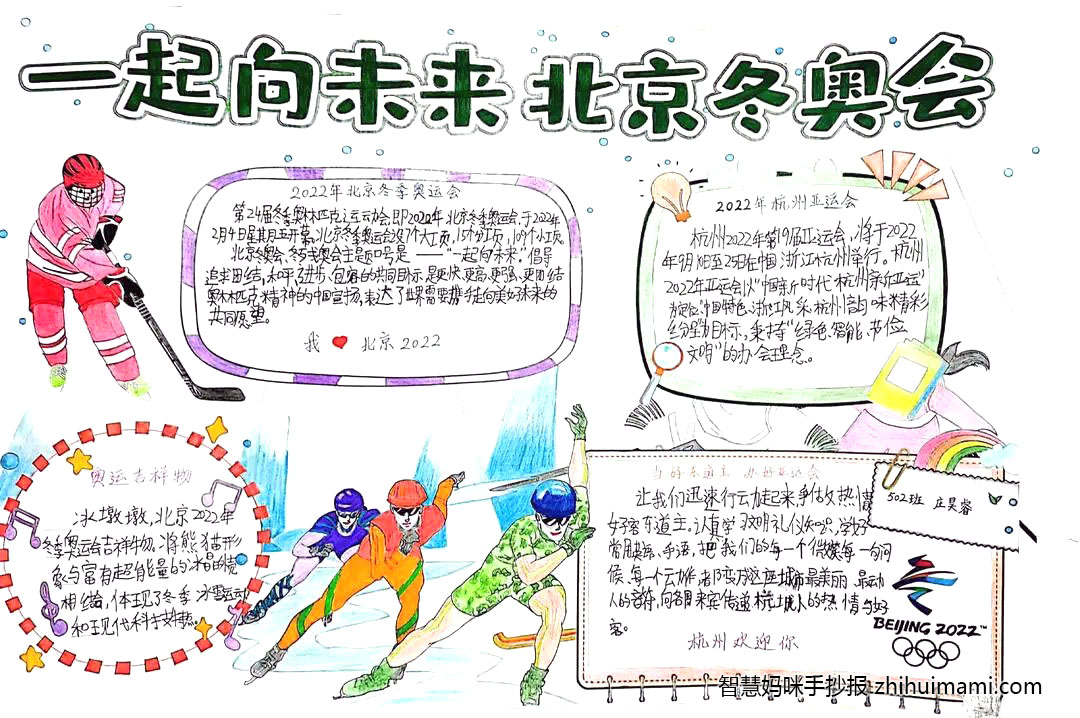 一起向未来 北京冬奥会
2022年北京冬季奥运会
第24届冬季奥林匹克运动会,即2022年北京冬季奥运会,于2022年
2月4日星期五开幕。北京冬季奥运会设7个大项,15个分项,109个小项。
北京冬奥会、冬残奥会主题口号是——“一起向未来”,倡导
追求团结、和平、进步、包容的共同目标,是更快、更高、更强、更团结
奥林匹克精神的中国宣扬,表达了世界需要携手走向美好未来的
共同愿望。
我 ❤ 北京2022
2022年杭州亚运会
杭州2022年第19届亚运会,将于2022
年9月10日至25日在中国浙江杭州举行。杭州
2022年亚运会以“中国新时代·杭州新亚运”
为定位、“中国特色、浙江风采、杭州韵味、精彩
纷呈”为目标,秉持“绿色、智能、节俭、
文明”的办会理念。
奥运吉祥物
冰墩墩,北京2022年
冬季奥运会吉祥物。将熊猫形
象与富有超能量的冰晶
相结合,体现了冬季冰雪运动
和现代科技
当好东道主 办好亚运会
让我们迅速行动起来,争做热情
好客东道主,认真学习文明礼仪知识,学好
常用英语、手语,把我们的每一个微笑、每一句问
候、每一个动作,都化为这座城市最美丽、最动
人的音符,向各国来宾传递杭城人的热情与好
客。
杭州欢迎你
502班 庄昊睿
BEIJING 2022™
智慧妈咪手抄报:zhihuimami.com